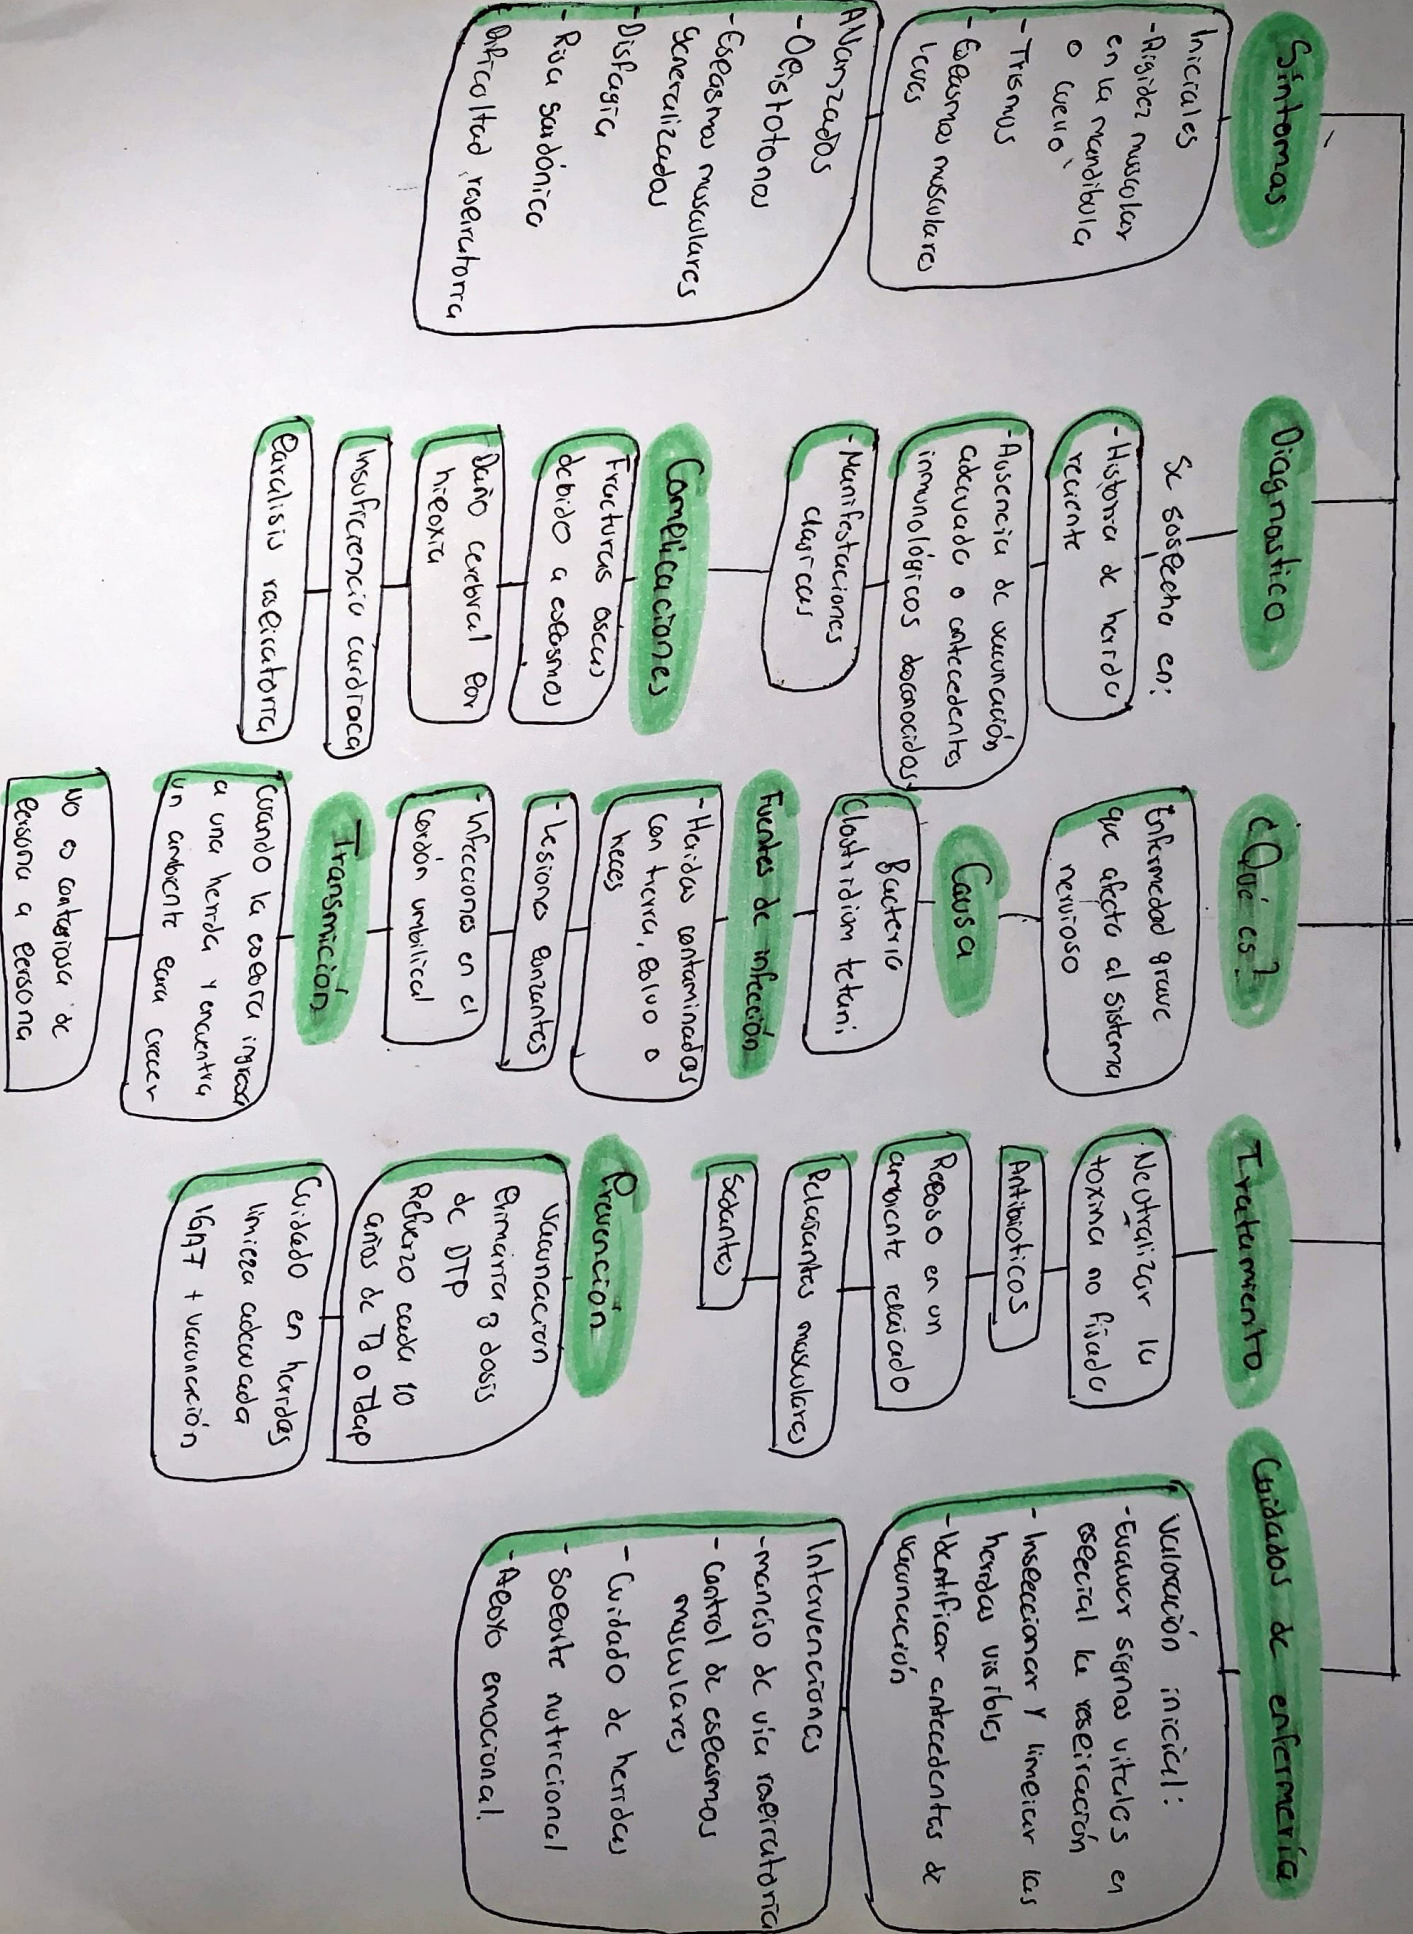 Síntomas
Iniciales
- Rigidez muscular
en la mandibula
o cuello
- Trismus
- Espasmos musculares
leves
Avanzados
- Opistotonos
- Espasmos musculares
generalizados
- Disfagia
- Risa sardónica
- Dificultad respiratoria
Diagnostico
Se sospecha en:
- Historia de herida
reciente
- Ausencia de vacunación
adecuada o antecedentes
inmunológicos desconocidos
- Manifestaciones
clasicas
Complicaciones
Fracturas oseas
debido a espasmos
Daño cerebral por
hipoxia
Insuficiencia cardiaca
Paralisis respiratoria
¿Qué es?
Enfermedad grave
que afecta al sistema
nervioso
Causa
Bacteria
Clostridium tetani
Fuentes de infección
- Heridas contaminadas
con tierra, polvo o
heces
- Lesiones punzantes
- Infecciones en el
cordón umbilical
Transmición
Cuando la espora ingresa
a una herida y encuentra
un ambiente para crecer
No es contagiosa de
persona a persona
Tratamiento
Neutralizar la
toxina no fijada
Antibioticos
Reposo en un
ambiente relajado
Relajantes musculares
Sedantes
Prevención
Vacunación
Primaria 3 dosis
de DTP
Refuerzo cada 10
años de Td o Tdap
Cuidado en heridas
limpieza adecuada
+ vacunación
Cuidados de enfermería
Valoración inicial:
- Evaluar signos vitales en
especial la respiración
- Inspeccionar y limpiar las
heridas visibles
- Identificar antecedentes de
vacunación
Intervenciones
- manejo de vía respiratoria
- Control de espasmos
musculares
- Cuidado de heridas
- Soporte nutricional
- Apoyo emocional.